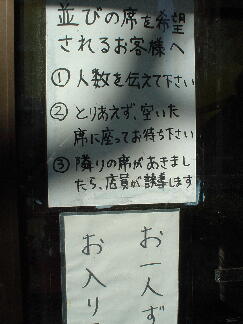 並びの席を希望
されるお客様へ
① 人数を伝えて下さい
② とりあえず、空いた
席に座ってお待ち下さい
③ 隣りの席があきまし
たら、店員が誘導します
お一人ず
お入り